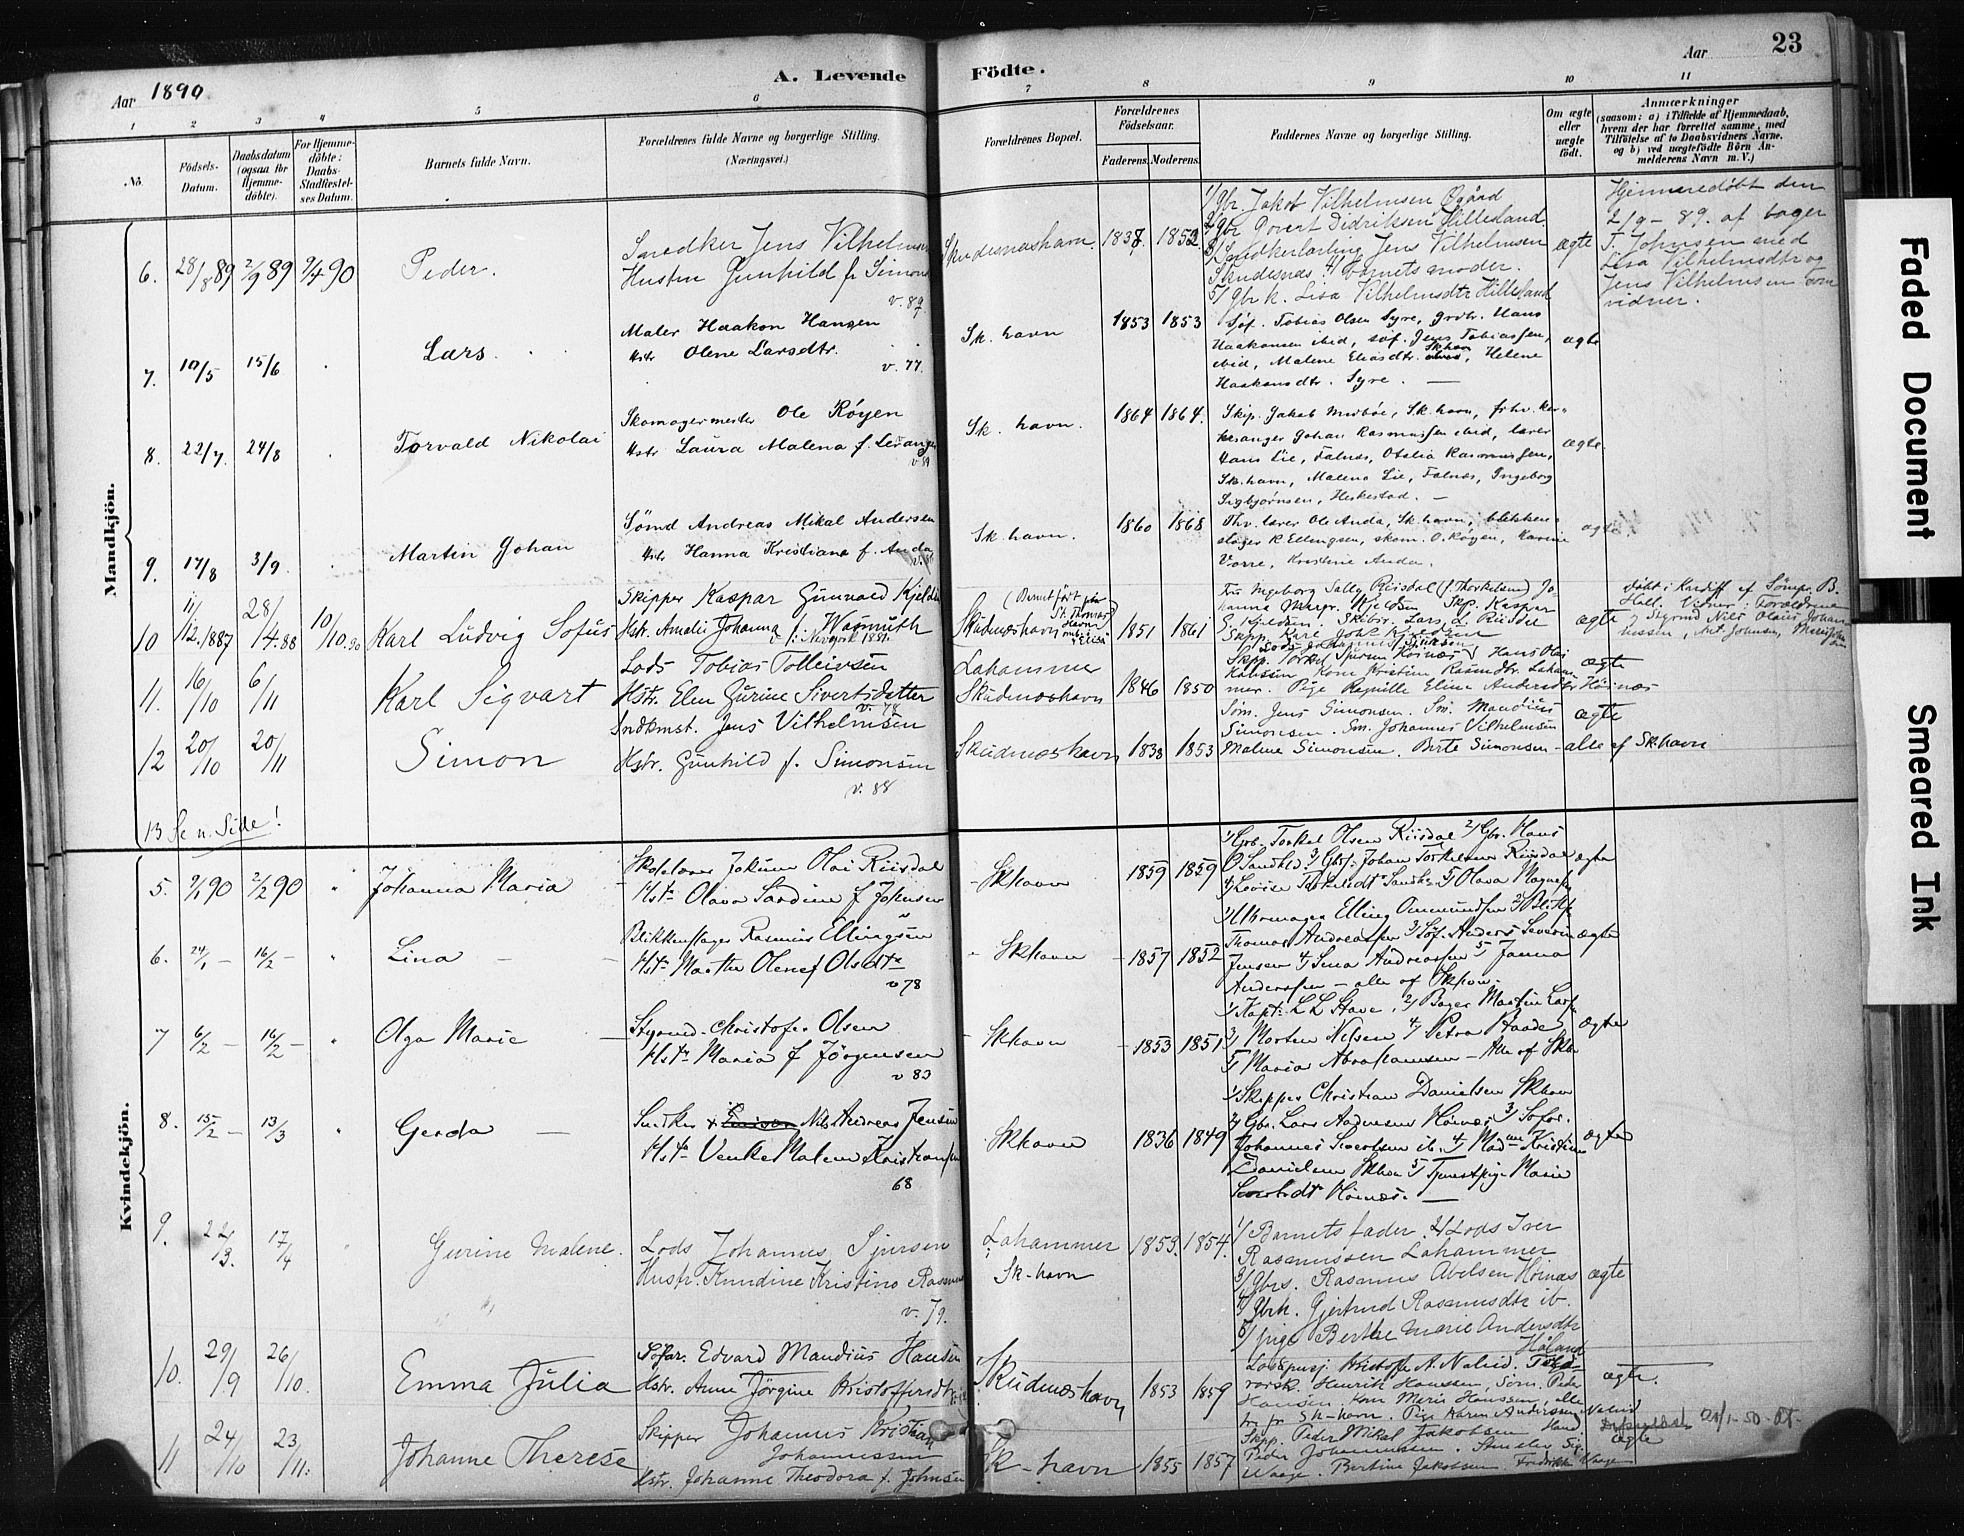 Aar 1890
A. Levende Födte.
Aar
23
1 2 3 4 5 6 7 8 9 10 11
No.
Födsels-Datum.
Daabsdatum (ogsaa for Hjemme-döbte).
For Hjemme-döbte: Daabs-Stadfæstel-ses Datum.
Barnets fulde Navn.
Forældrenes fulde Navne og borgerlige Stilling. (Næringsvei.)
Forældrenes Bopæl.
Forældrenes Födselsaar.
Faderens. Moderens.
Faddernes Navne og borgerlige Stilling.
Om ægte eller uægte født.
Anmærkninger
(saasom: a) i Tilfælde af Hjemmedaab,
hvem der har forrettet samme, med
Tilföielse af to Daabsvidners Navne,
og b) ved uægtefödte Börn An-
melderens Navn m. V.)
Mandkjön.
6. 28/8 89 2/9 89 7/4 90
Peder.
Snedker Jens Vilhelmsen
Hustru Gunhild f. Simons
v. 89.
Skudesneshavn 1837. 1852.
1/ gbr. Jakob Vilhelmsen Øgård
2/ gbr Govert Didriksen Hillesland
3/ Snedkerlærling Jens Vilhelmsen
Skudesnæs 4/ barnets moder.
5/ gbr k. Lisa Vilhelmsdtr Hillesland
ægte
Hjemmedøbt den
2/9 - 89. af bager
T. Johnsen med
Lisa Vilhelmsdtr og
Jens Vilhelmsen som
vidner.
7. 10/5 15/6
Lars.
Maler Haakon Hansen
Hstr Olene Larsdtr.
v. 77.
Sk. havn 1853 1853
Søf. Tobias Olsen Syre, grbr. Hans
Haakonsen ibid, søf. Jens Tobiassen,
ibid, Malene Eliasdtr. Skhavn, Helene
Haakonsdtr. Syre. —
ægte
8. 22/7. 24/8
Torvald Nikolai
Skomagermester Ole Røyen
Hstr Laura Malena f. Levanger
v. 89
Sk. havn. 1864 1864.
Skip. Jakob Meibøe, Sk. havn, frhv. kir-
kesanger Johan Rasmussen ibid, lærer
Hans Lie, Falnes, Otelia Rasmussen,
Sk. havn, Malena Lie, Falnes, Ingeborg
Sigbjørnsen, Heskestad. —
ægte.
9. 17/8 3/9.
Martin Johan
Sømd Andreas Mikal Andersen
Hstr Hanna Kristiane f. Anda
Sk. havn. 1860 1868
Fhv. lærer Ole Anda, Sk. havn, blikken-
slager R. Ellingsen, skom. O. Røyen, Karine
Vorre, Kristine Anda.
ægte
10 11/12. 1887 28/4. 88 10/10. 90
Karl Ludvig Sofus
Skipper Kaspar Gunvald Kjeldsen
Hstr. Amelie Johanna f. Wasmuth
v. i Newyork 1881.
Skudnæshavn 1851 1861
Fru Ingeborg Sally Riisdal (f. Thorkelsen) Jo-
hanna Margr. Kjeldsen Skp. Kaspar
G. Kjeldsen. Skibsr. Lars L. Riisdal
Skpp. Kare Johs Kjeldsen
ægte
Døbt i Kardiff af Sømpr. B.
Hall. Vidner: Forældrene
Sigvard Nils Olaus Johan-
nessen, Ant. Johnsen,
11. 16/10 6/11
Karl Sigvart
Lods Tobias Tolleivsen
Hstr. Elen Gurine Sivertsdatter
v. 78
Lahammer
Skudnæshavn 1846 1850
Skpp. Torkel Sjursen Høinæs. Hans Olai
Kone Kristine Rasmdtr. Laham-
mer. Pige Regnille Eline Andersdtr Høinæs
ægte
12 20/10 20/11
Simon
Sndkmst. Jens Vilhelmsen
Hstr. Gunhild f. Simonsen
v. 88
Skudnæshavn 1838 1853
Søm. Jens Simonsen. Sm. Maudius
Simonsen. Sm. Johannes Vilhelmsen
Malene Simonsen. Berte Simonsen - alle af Skhavn
ægte
13 Se n. Side!
Kvindekjön.
5. 7/1 90 2/2 90
Johanna Maria
Skolelærer Jokum Olai Riisdal
Hstr Olava Sardine f Johnsen
Skhavn 1859 1859
1/ Grb. Torkel Olsen Riisdal 2/ Gbr. Hans
O Sandhd. 3/ Gbrf. Johan Torkelsen Riisdal
4/ Lovise Torkelsdtr Sandh. 5/ Olava Magnes
ægte
6. 24/1 - 16/2 -
Lina
Blikkenslager Rasmus Ellingsen
Hstr Marthe Olene f Olsdtr
v 78
Skhavn 1857 1852
1/ Skomager Elling Ommundsen 2/ Blikf
Thomas Andreassen 3/ Søf. Anders Severin
Jensen 4/ Lena Andreassen 5 Janna
Anderssen - alle af Skhavn.
ægte
7 6/2 - 16/2 -
Olga Marie
Styrmd. Christofer Olsen
Hstr Maria f Jörgensen
v 83
Skhavn 1853 1851
1/ Kapt. L L Stave, 2/ Bager Martin Lars
3/ Morten Nilsen 4/ Petra Haade
5/ Maria Abrahamsen - Alle af Skhn
ægte
8. 15/2 - 13/3
Gerda
Snedker Nils Andreas Jensen
Hstr Venke Malene Kristiansen
68
Skhavn 1836 1849
1/ Skipper Christian Danielsen Skhavn
2/ Gbr. Lars Andersen Höinæs 3/ Sofar.
Johannes Severtsen ib. 4/ Madam Kristine
Danielsen Skhvn 5/ Tjenestpige Marie
Severtsdtr Höinæs. —
ægte
9. 22/3. 17/4
Gurine Malene.
Lods Johannes Sjursen
Hustr. Knudine Kristine Rasmus
v. 79.
Lahammer
Sk-havn 1853. 1854.
1/ Barnets fader. 2/ Lods Iver
Rasmussen Lahammer
3/ gbrs. Rasmus Abelsen Høinæs
4/ gbrk. Gjertrud Rasmusdtr ib.
5/ pige Berthe Marie Andersdtr
Håland
ægte
10. 29/9 26/10.
Emma Julia
Søfar. Edvard Maudius Hansen
Hstr. Anne Jörgine Kristoffersdtr
Skudnæshavn 1853 1859
Lodspasj. Kristoffer A. Nalvid.
Henrik Hanssen, Søm. Peder
Hansen, Kone Marie Hanssen, alle
fr Sk-havn. Pige Karen Andersen Nalvid
ægte.
11 24/10 23/11.
Johanne Therese
Skipper Johannes Kristian
Johannessen
Hstr. Johanne Theodora f. Johnsen
Sk-havn 1855 1857
Skpp. Peder Mikal Jakobsen
Peder Johannessen.
Waage. Bertine Jakobsen. Fredrikke Waage
ægte
21/1-50.
Faded Document
Smeared Ink